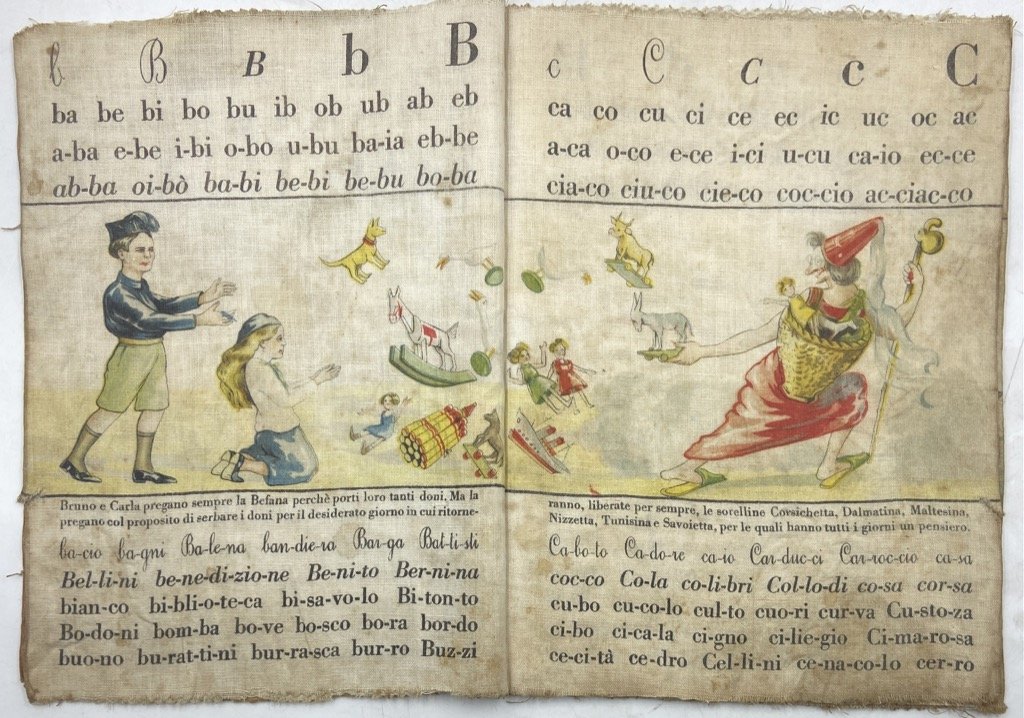 b B B b B
ba be bi bo bu ib ob ub ab eb
a-ba e-be i-bi o-bo u-bu ba-ia eb-be
ab-ba oi-bò ba-bi be-bi be-bu bo-ba
Bruno e Carla pregano sempre la Befana perchè porti loro tanti doni. Ma la
pregano col proposito di serbare i doni per il desiderato giorno in cui ritorne-
ba-cio ba-gni Ba-le-na ban-die-ra Bar-ga Bat-ti-sti
Bel-li-ni be-ne-di-zio-ne Be-ni-to Ber-ni-na
bian-co bi-bli-o-te-ca bi-sa-vo-lo Bi-ton-to
Bo-do-ni bom-ba bo-ve bo-sco bo-ra bor-do
buo-no bu-rat-ti-ni bur-ra-sca bur-ro Buz-zi
c C C c C
ca co cu ci ce ec ic uc oc ac
a-ca o-co e-ce i-ci u-cu ca-io ec-ce
cia-co ciu-co cie-co coc-cio ac-ciac-co
ranno, liberate per sempre, le sorelline Corsichetta, Dalmatina, Maltesina,
Nizzetta, Tunisina e Savoietta, per le quali hanno tutti i giorni un pensiero.
Ca-bo-to Ca-do-re ca-io Car-duc-ci Car-roc-cio ca-sa
coc-co Co-la co-li-bri Col-lo-di co-sa cor-sa
cu-bo cu-co-lo cul-to cuo-ri cur-va Cu-sto-za
ci-bo ci-ca-la ci-gno ci-lie-gio Ci-ma-ro-sa
ce-ci-tà ce-dro Cel-li-ni ce-na-co-lo cer-ro